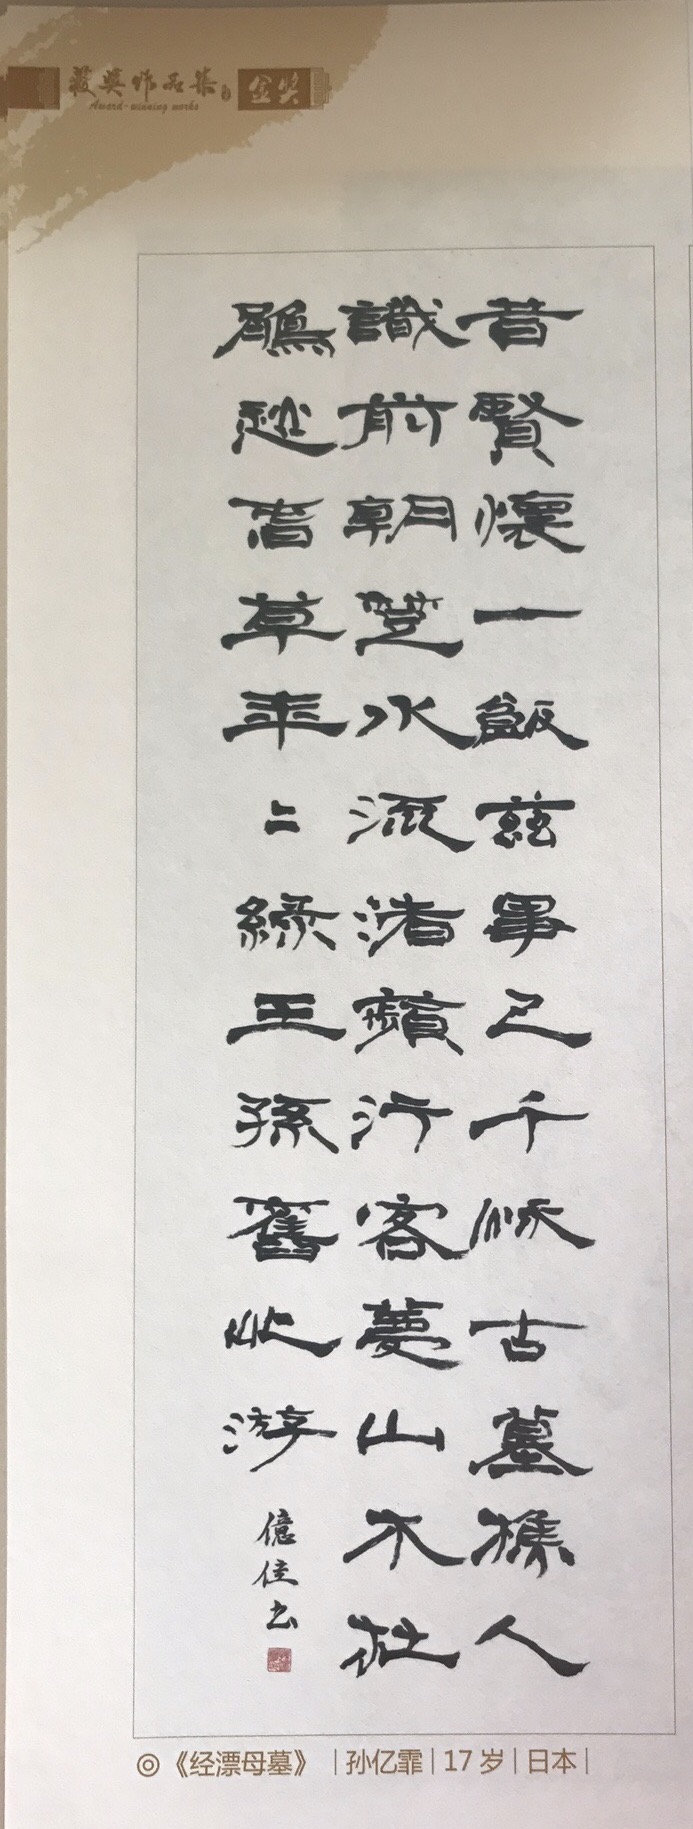 获奖作品集 金奖
Award-winning works
昔賢懷一飯兹事已千秋古墓樵人
識前朝楚水流渚蘋行客夢山木杜
鵑愁春草年二綠王孫舊此游
億佳书
◎《经漂母墓》|孙亿霏|17岁|日本|